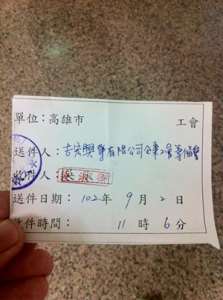 單位：高雄市 工會
送件人：吉宏興業有限公司企業工會籌備會
收件人：
送件日期：102年9月2日
收件時間：11時6分